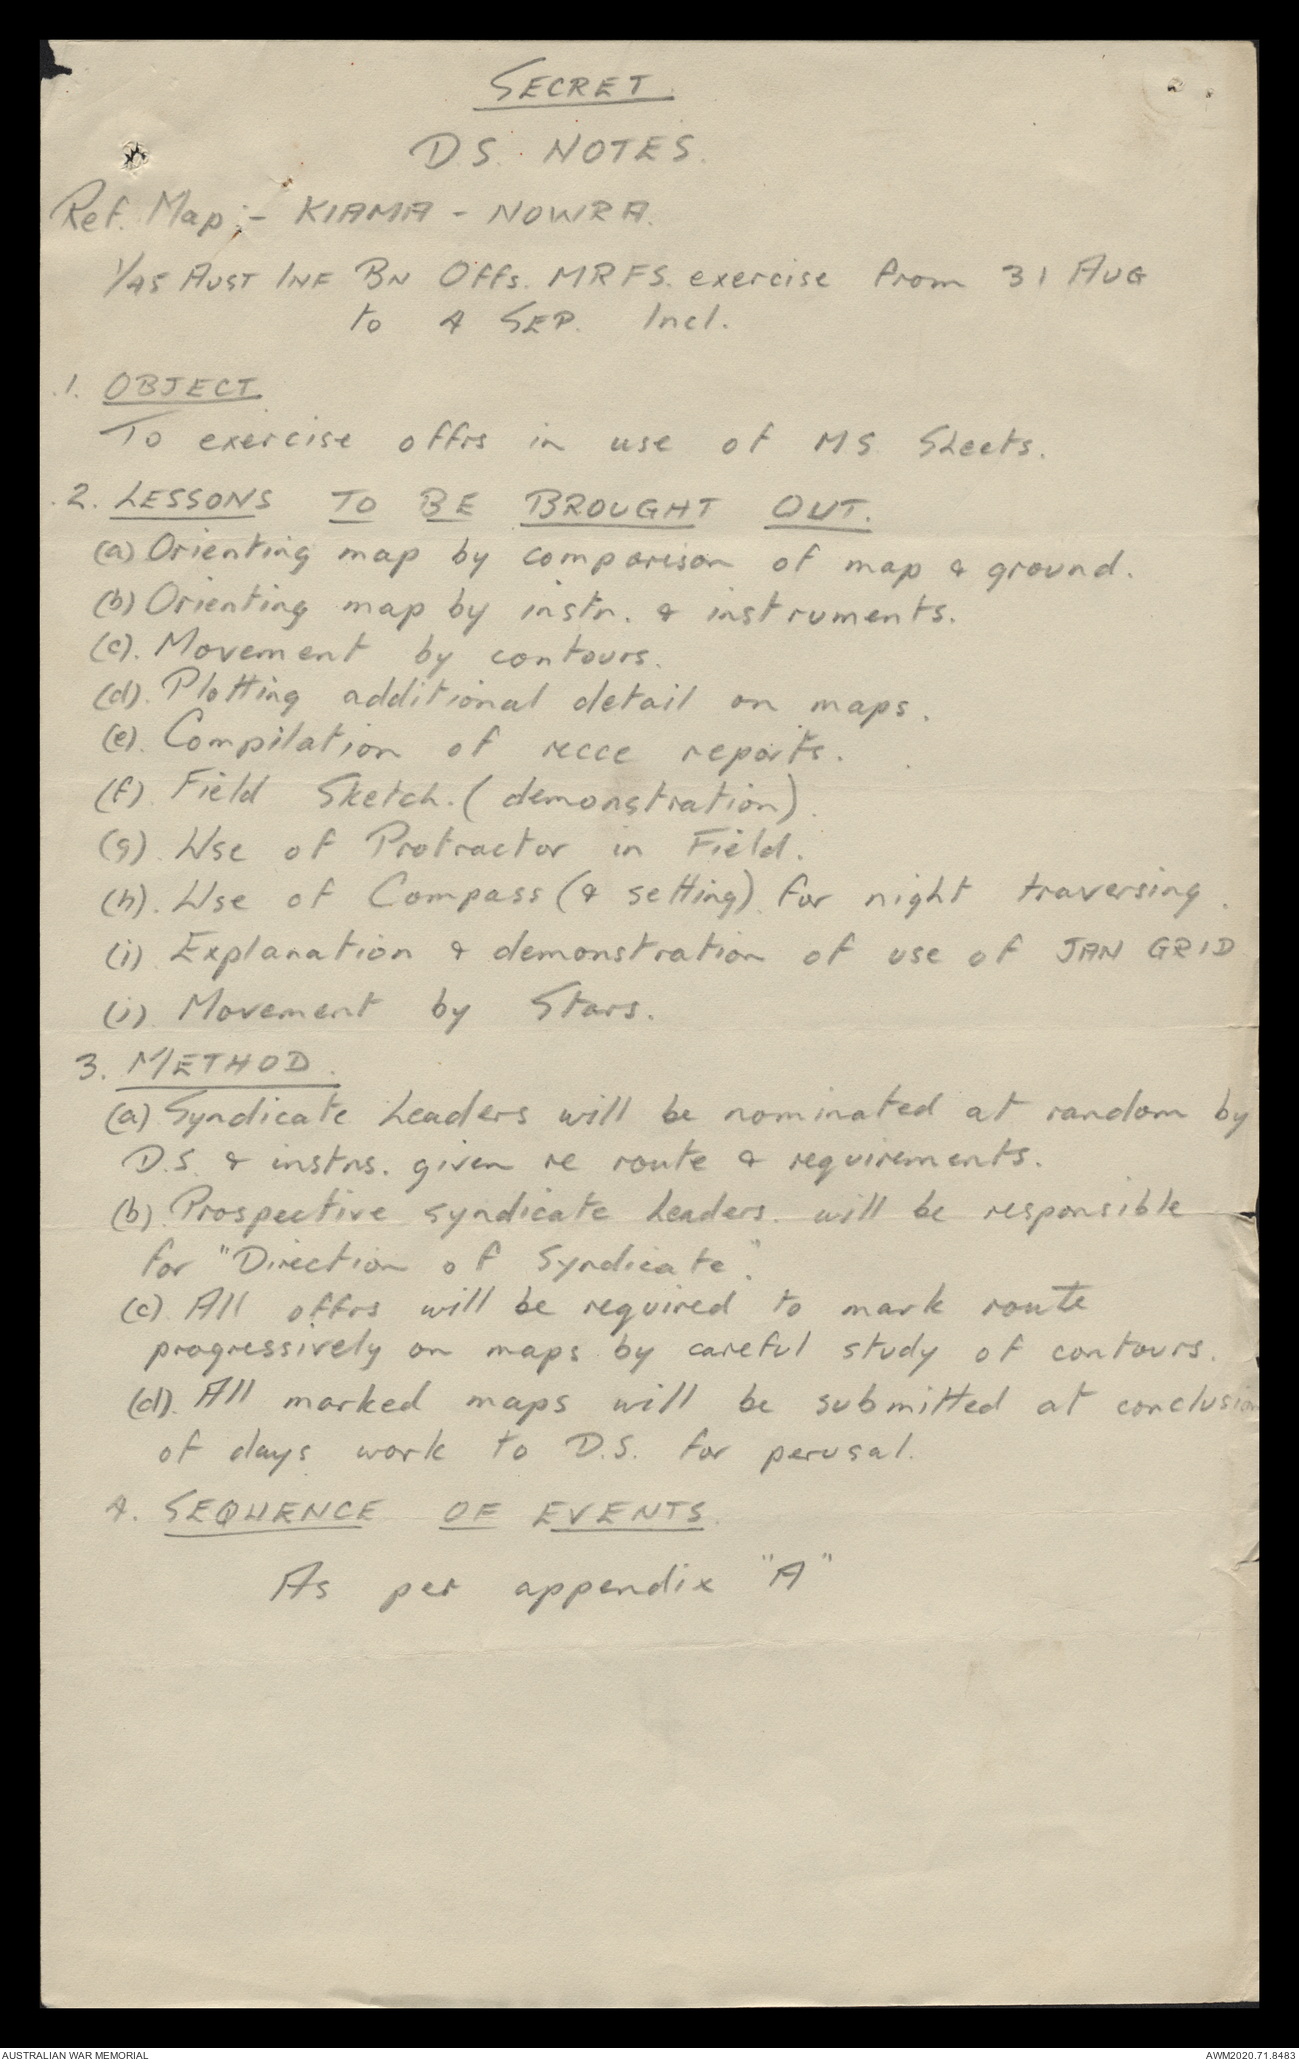 SECRET
D.S. NOTES.
Ref. Map:- KIAMA - NOWRA.
1/45 AUST INF BN Offs. MRFS. exercise from 31 AUG
to 4 SEP. Incl.
1. OBJECT
To exercise offrs in use of MS Sheets.
2. LESSONS TO BE BROUGHT OUT.
(a) Orienting map by comparison of map & ground.
(b) Orienting map by instn. & instruments.
(c). Movement by contours.
(d). Plotting additional detail on maps.
(e). Compilation of recce reports.
(f). Field Sketch. (demonstration).
(g). Use of Protractor in Field.
(h). Use of Compass (& setting) for night traversing.
(i) Explanation & demonstration of use of JAN GRID
(j). Movement by Stars.
3. METHOD.
(a) Syndicate Leaders will be nominated at random by
D.S. & instns. given re route & requirements.
(b) Prospective syndicate Leaders will be responsible
for "Direction of Syndicate".
(c) All offrs will be required to mark route
progressively on maps by careful study of contours.
(d). All marked maps will be submitted at conclusion
of days work to D.S. for perusal.
4. SEQUENCE OF EVENTS.
As per appendix "A"
AUSTRALIAN WAR MEMORIAL
AWM2020.71.8483